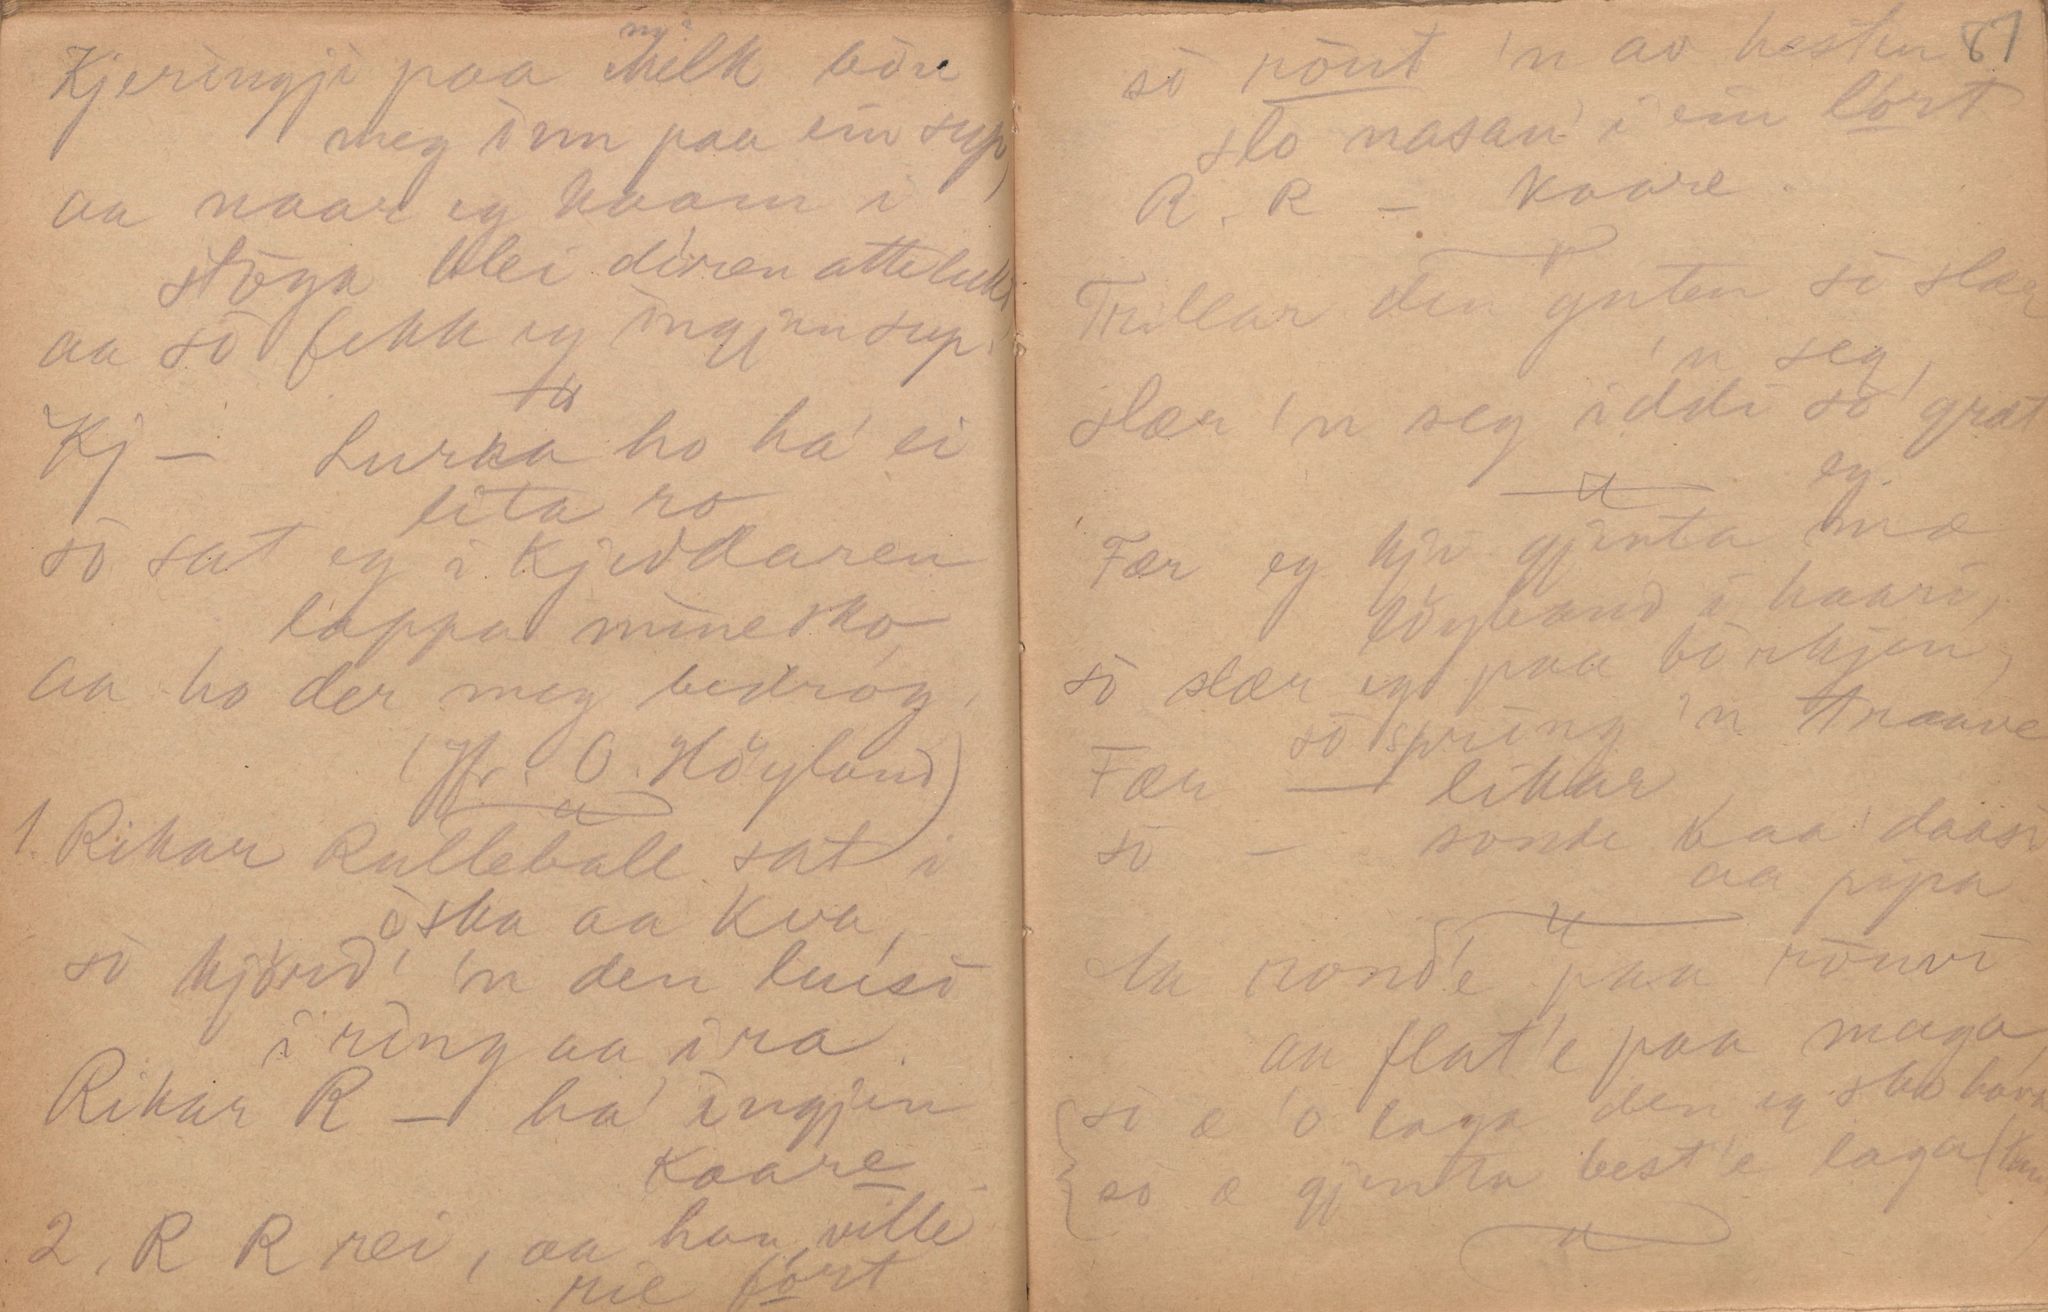 Kjeringji paa Melk bòu
meg inn paa ein sup,
aa naar eg kaam i
stòga blei dùren attelukt
aa so fekk eg ingjen sup.
Kj – Lurka ho ha' ei
lita ro
so sat eg i Kjeddaren
lappa mine sko,
aa ho der meg bedróg.
(Hr. O. Höyland)
1. Rikar Rulleball sat i
òska aa kva,
so kjöṙd' 'n den luiso
i ring aa i ra.
Rikar R – ha' ingjen
Kaare
2, R R rei, aa han ville
rie fòrt
87
so rònt 'n av hesten
slo nasan' i ein lòrt
R. R – Kaare.
Trillar den guten so slær
'n seg,
slær 'n seg iddi so græt
eg.
Fær eg kji gjenta mæ
löyband i haari,
so slær eg paa bòrkjen,
so spring 'n traave
Fær – likar
so – sonde daasi
aa pipa
rond'e paa ròuvi
aa flat'e paa maga,
so æ 'o laga den eg ska hava
so æ gjenta best'e laga